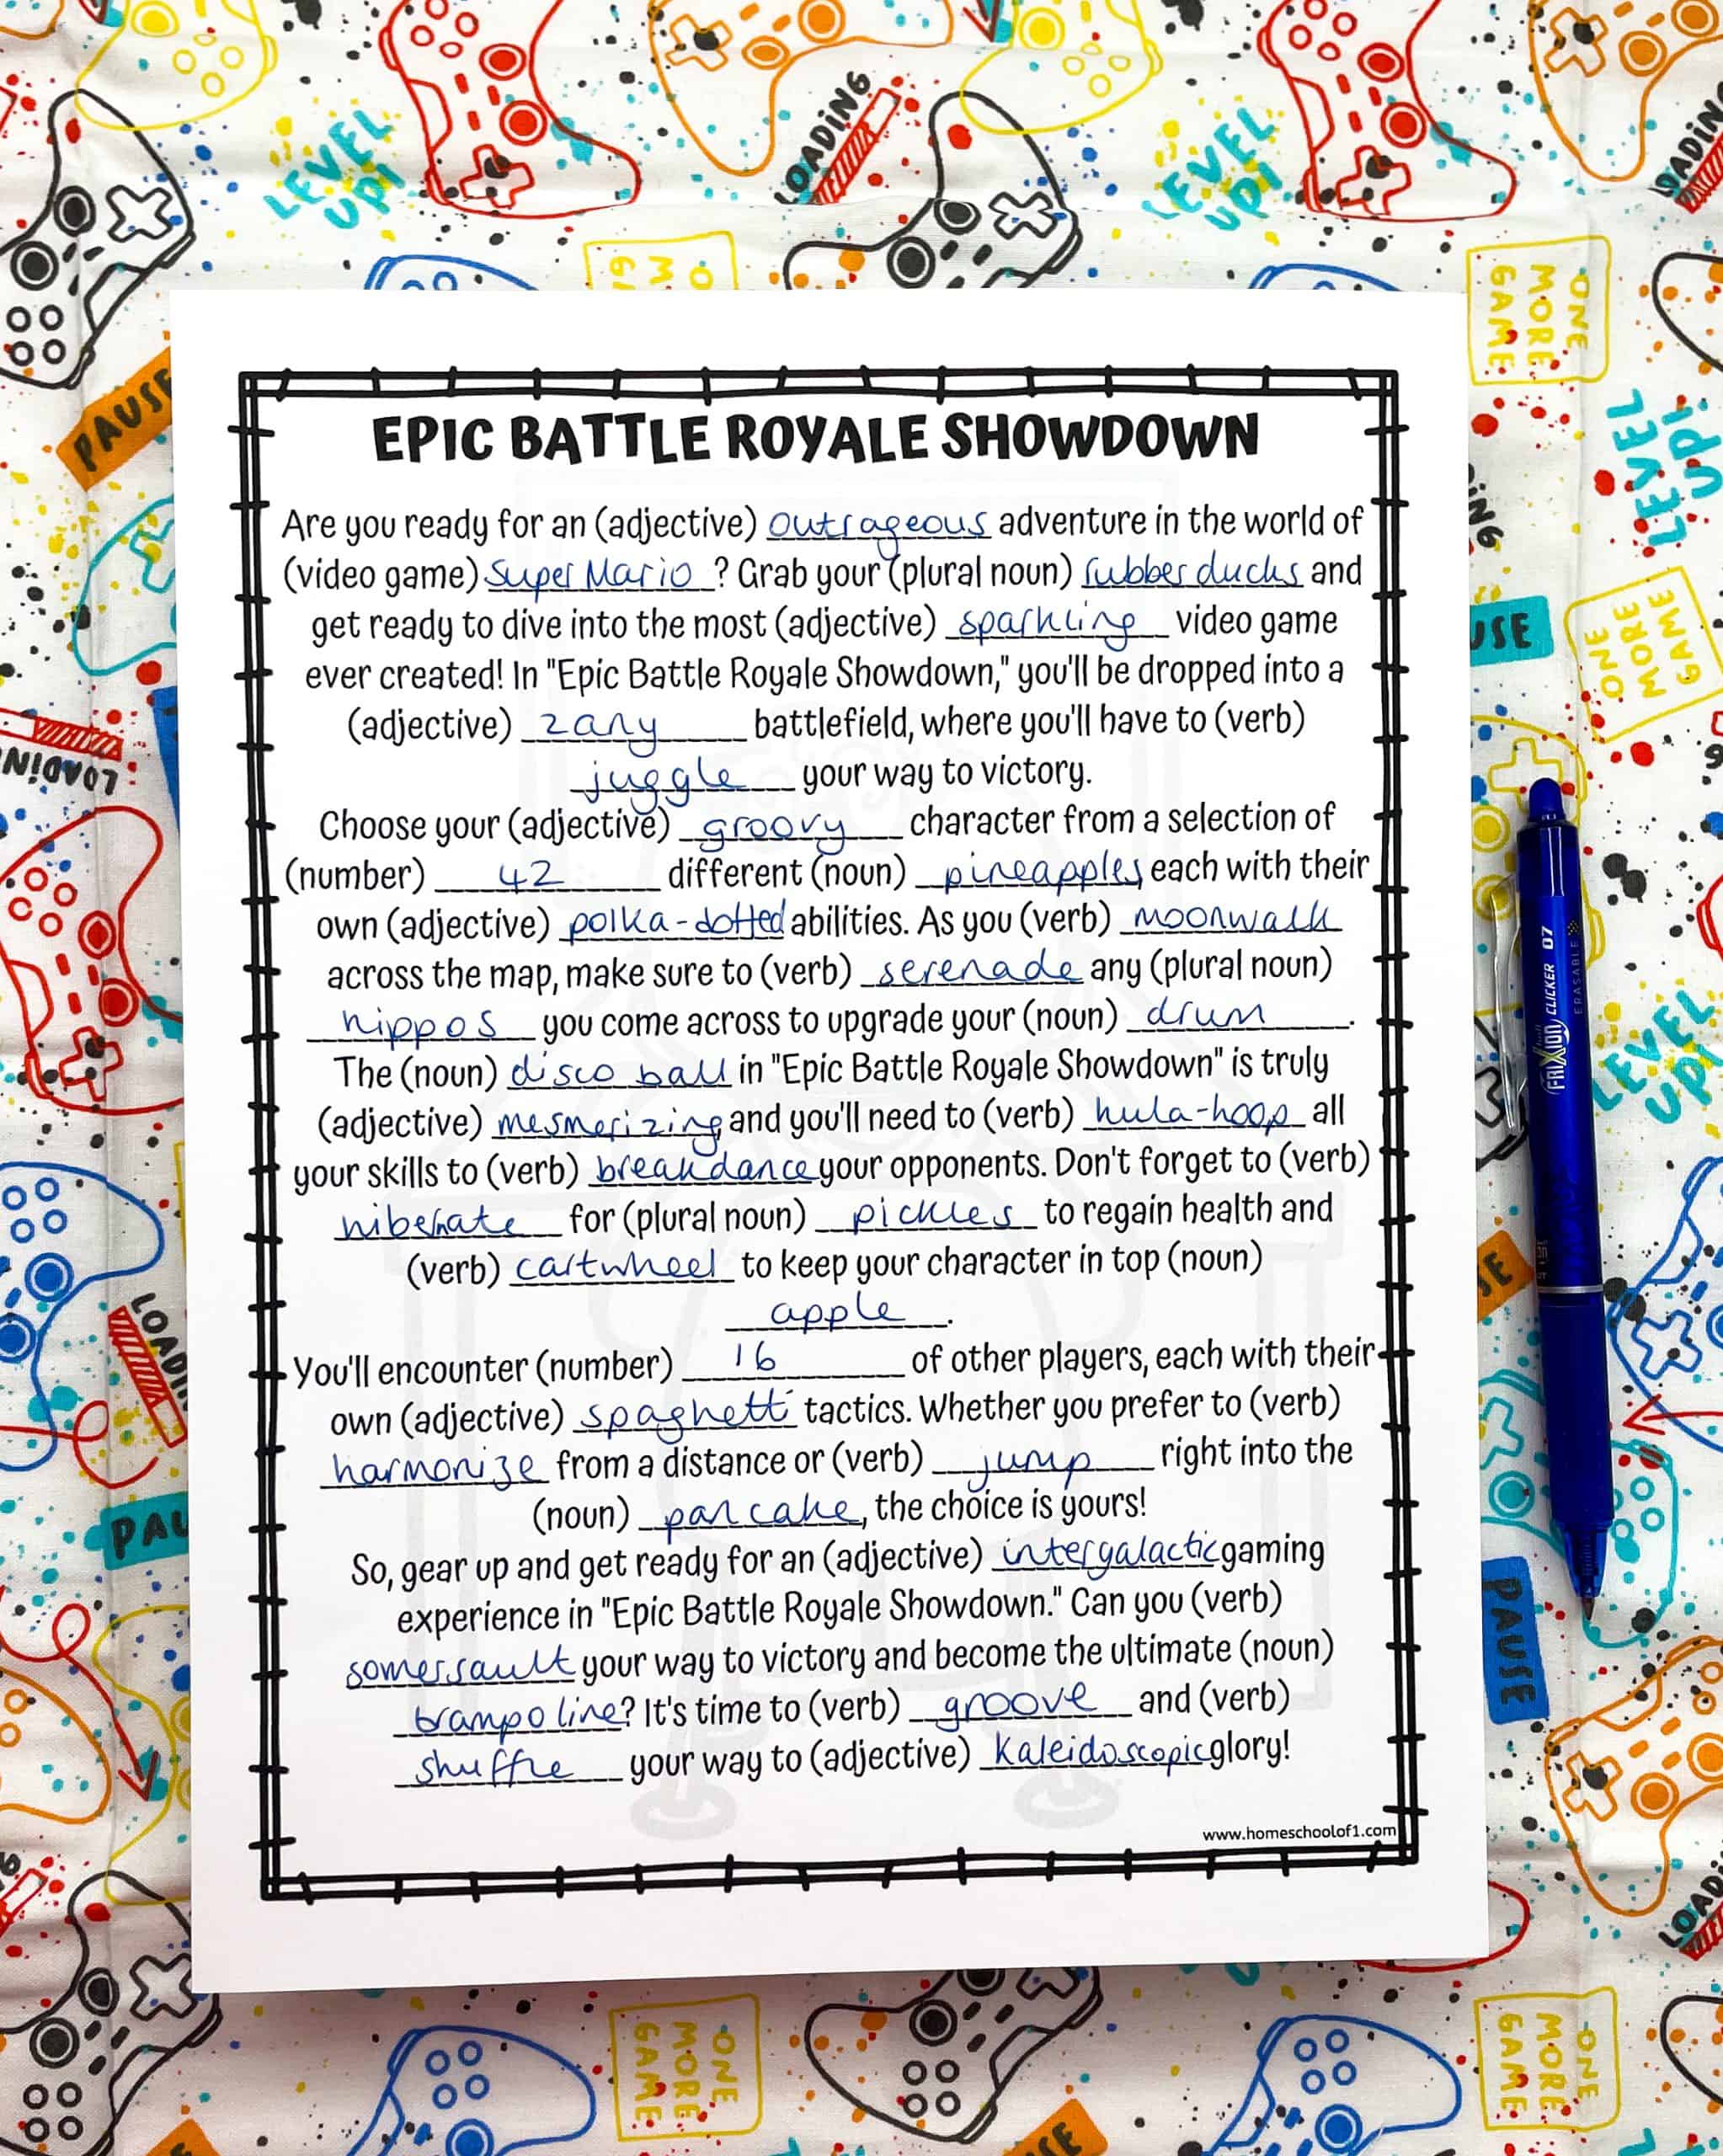 LEVEL UP!
LOADING
LEVEL UP!
LOADING
ONE MORE GAME
PAUSE
LEVEL UP!
EPIC BATTLE ROYALE SHOWDOWN
Are you ready for an (adjective) outrageous adventure in the world of
(video game) Super Mario? Grab your (plural noun) rubber ducks and
get ready to dive into the most (adjective) sparkling video game
ever created! In "Epic Battle Royale Showdown," you'll be dropped into a
(adjective) zany battlefield, where you'll have to (verb)
juggle your way to victory.
Choose your (adjective) groovy character from a selection of
(number) 42 different (noun) pineapples, each with their
own (adjective) polka-dotted abilities. As you (verb) moonwalk
across the map, make sure to (verb) serenade any (plural noun)
hippos you come across to upgrade your (noun) drum.
The (noun) disco ball in "Epic Battle Royale Showdown" is truly
(adjective) mesmerizing, and you'll need to (verb) hula-hoop all
your skills to (verb) breakdance your opponents. Don't forget to (verb)
hibernate for (plural noun) pickles to regain health and
(verb) cartwheel to keep your character in top (noun)
apple.
You'll encounter (number) 16 of other players, each with their
own (adjective) spaghetti tactics. Whether you prefer to (verb)
harmonize from a distance or (verb) jump right into the
(noun) pancake, the choice is yours!
So, gear up and get ready for an (adjective) intergalactic gaming
experience in "Epic Battle Royale Showdown." Can you (verb)
somersault your way to victory and become the ultimate (noun)
trampoline? It's time to (verb) groove and (verb)
shuffle your way to (adjective) kaleidoscopic glory!
www.homeschoolof1.com
ONE MORE GAME
LOADING
FRIXION CLICKER 07
ERASABLE
LEVEL UP!
LOADING
PAUSE
LOADING
ONE MORE GAME
ONE MORE GAME